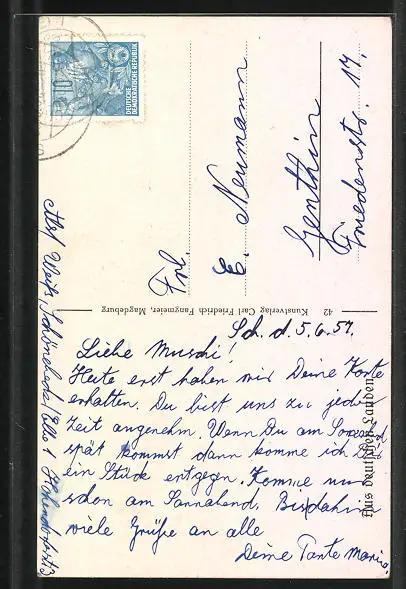 DEUTSCHE
DEMOKRATISCHE REPUBLIK
10
Frl.
E. Neumann
Genthin
Friedenstr. 17.
42 Kunstverlag Carl Friedrich Fangmeier, Magdeburg
Aus deutschen Landen
Sch. d. 5.6.57.
Liebe Muschi!
Heute erst haben wir Deine Karte
erhalten. Du bist uns zu jeder
Zeit angenehm. Wenn Du am Sonnabend
spät kommst dann komme ich Dir
ein Stück entgegen. Komme nur
schon am Sonnabend. Bis dahin
viele Grüße an alle
Deine Tante Maria.
Schönebeck/Elbe 1